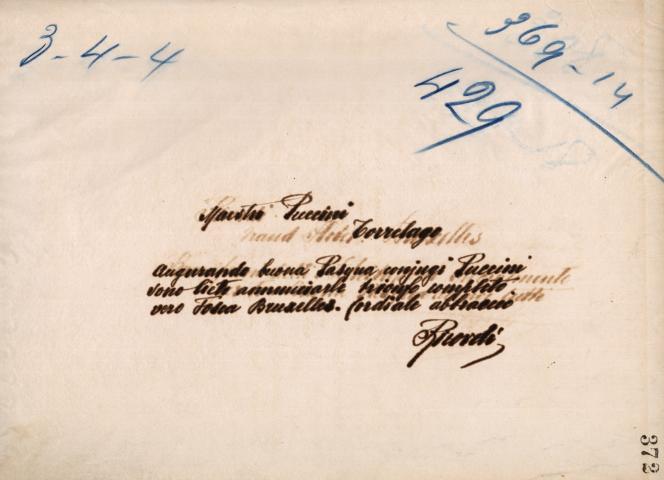 3-4-4
369-14
429
Maestro Puccini
Torrelago
Augurando buona Pasqua conjugi Puccini
sono lieto annunciarle trionfo completo
vero Tosca Bruxelles. Cordiale abbraccio
Ricordi
373